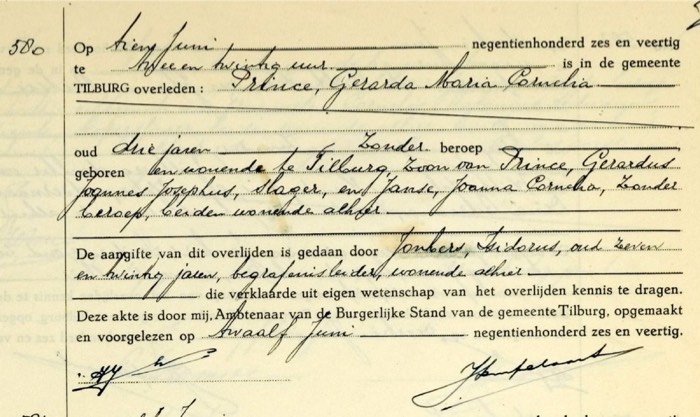 580
Op tien Juni negentienhonderd zes en veertig
te twee en twintig uur is in de gemeente
TILBURG overleden : Prince, Gerarda Maria Cornelia
oud drie jaren zonder beroep
geboren en wonende te Tilburg, Zoon van Prince, Gerardus
Joannes Josephus, slager, en Janse, Joanna Cornelia, Zonder
beroep, beiden wonende alhier
De aangifte van dit overlijden is gedaan door Jonkers, Isidorus, oud zeven
en twintig jaren, begrafenisleider, wonende alhier
die verklaarde uit eigen wetenschap van het overlijden kennis te dragen.
Deze akte is door mij, Ambtenaar van de Burgerlijke Stand van de gemeente Tilburg, opgemaakt
en voorgelezen op twaalf Juni negentienhonderd zes en veertig.